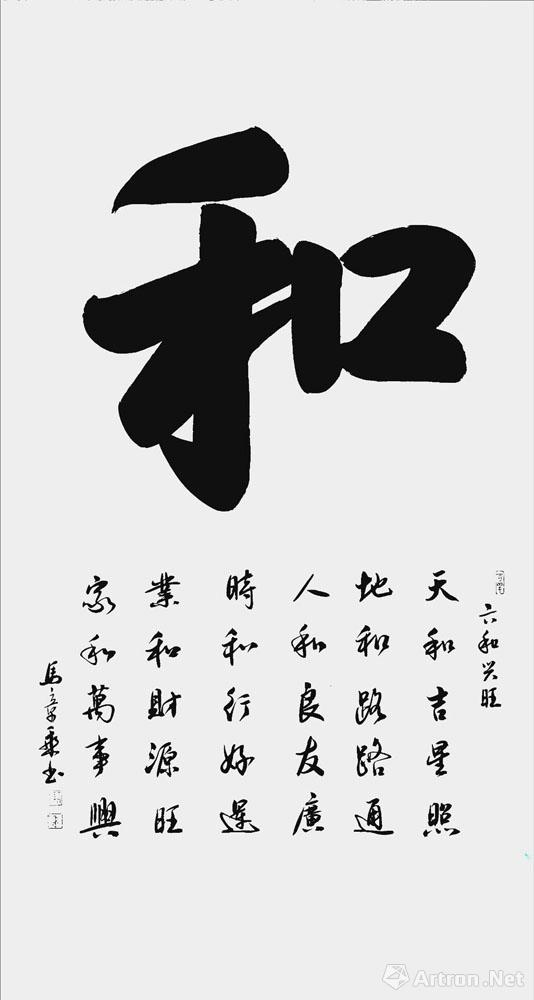 和
六和兴旺
天和吉星照
地和路路通
人和良友廣
時和行好運
業和財源旺
家和萬事興
馬章乘书
Artron.Net